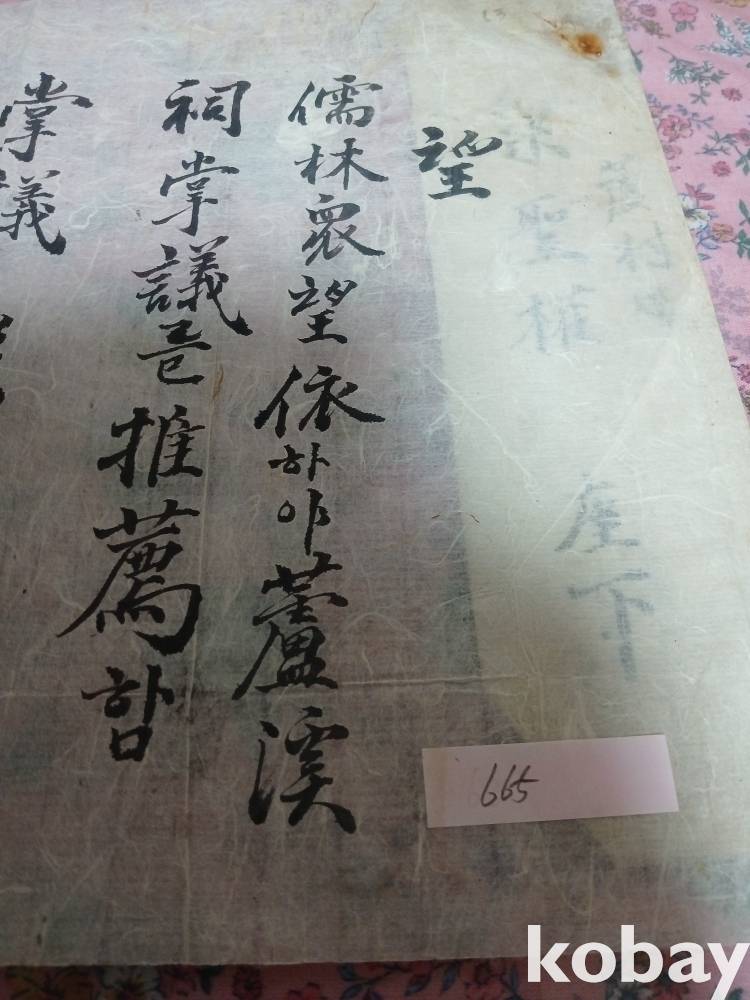 座下
望
儒林衆望依하야蘆溪
祠掌議를推薦함
掌議
665
kobay